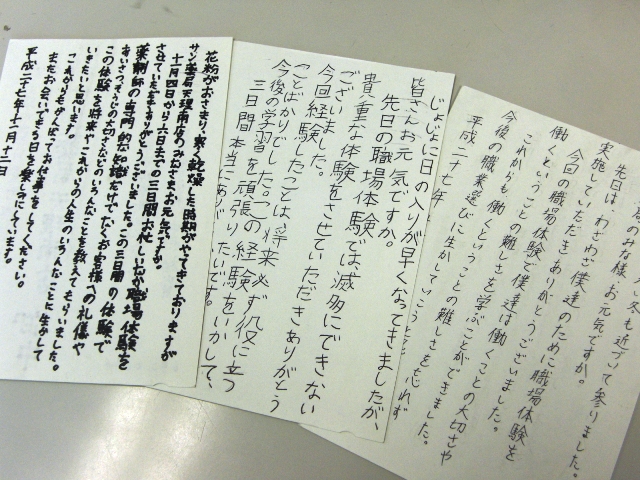 花粉がおさまり、寒く乾燥した時期がやってきておりますが
サン薬局天理南店のみなさまお元気ですか。
十一月四日から六日までの三日間お忙しいなか職場体験を
させていただきありがとうございました。この三日間の体験で
薬剤師の専門的な知識だけでなくお客様への礼儀や
あいさつ
この体験を将来やこれからの人生のいろんなことに生かして
いきたいと思います。
これからもがんばってお仕事をしてください。
またお会いできる日を楽しみにしています。
平成二十七年十一月十二日
じょじょに日の入りが早くなってきましたが、
皆さんお元気ですか。
先日の職場体験では滅多にできない
貴重な体験をさせていただきありがとう
ございました。
今回経験したことは、将来必ず役に立つ
ことばかりでした。この経験をいかして、
今後の学習を頑張りたいです。
三日間本当にあり
冬も近づいて参りました。
のみな様、お元気ですか。
先日は、わざわざ僕達のために職場体験を
実施していただきありがとうございました。
今回の職場体験で僕達は働くことの大切さや
働くということの難しさを学ぶことができました。
これからも、働くということの難しさを忘れず
今後の職業選びに生かしていこうと
平成二十七年